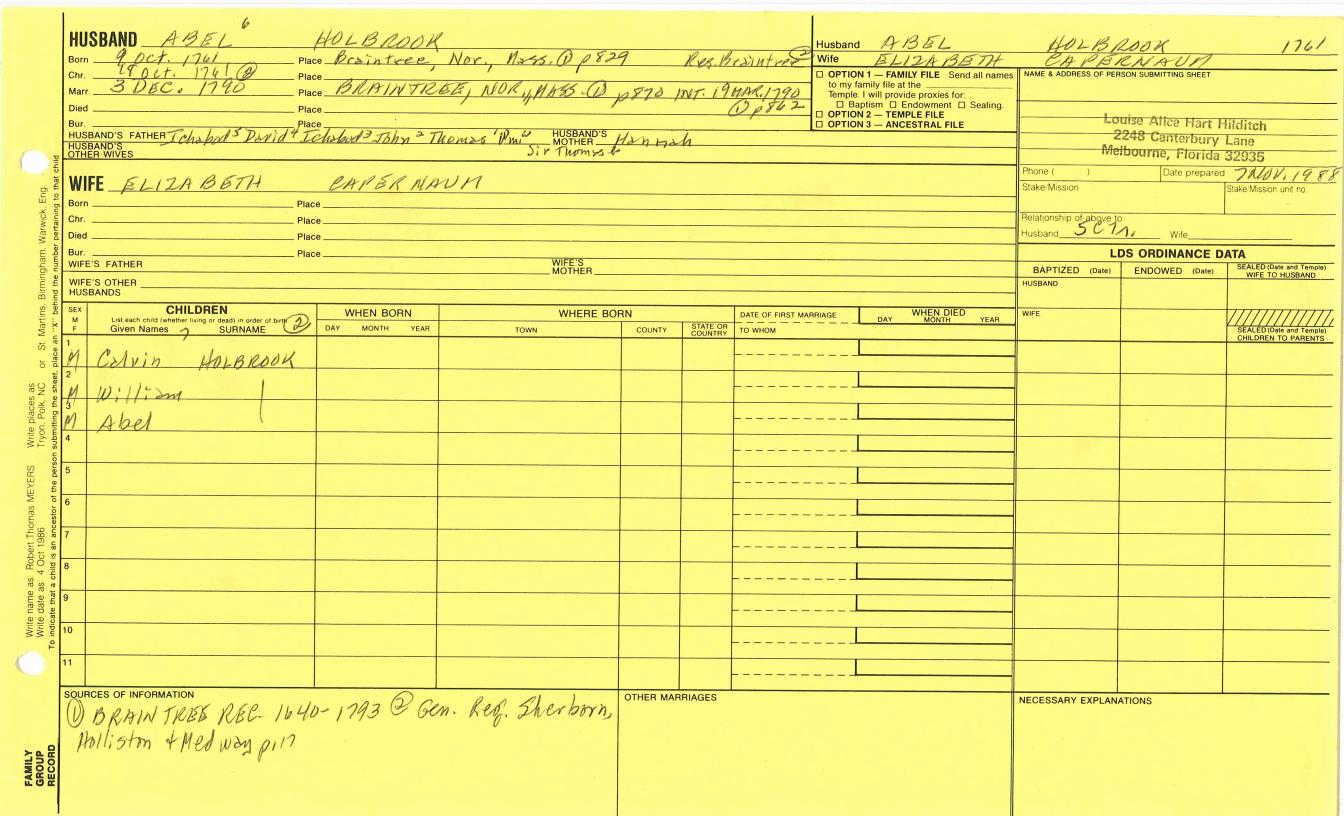 HUSBAND ABEL 6 HOLBROOK
Born 9 Oct. 1761 Place Braintree, Nor., Mass. ① p829 Res. Braintree ②
Chr. 19 Oct. 1761 ② Place
Marr 3 DEC. 1790 Place BRAINTREE, NOR., MASS. ① p870 INT. 19 MAR. 1790
Died Place ① p862
Bur. Place
HUSBAND'S FATHER Ichabod 5 David 4 Ichabod 3 John 2 Thomas 1 HUSBAND'S MOTHER Hannah
HUSBAND'S OTHER WIVES Sir Thomas
WIFE ELIZABETH CAPERNAUM
Born Place
Chr. Place
Died Place
Bur. Place
WIFE'S FATHER WIFE'S MOTHER
WIFE'S OTHER HUSBANDS
Husband ABEL HOLBROOK 1761
Wife ELIZABETH CAPERNAUM
☐ OPTION 1 — FAMILY FILE Send all names
to my family file at the
Temple. I will provide proxies for:
☐ Baptism ☐ Endowment ☐ Sealing.
☐ OPTION 2 — TEMPLE FILE
☐ OPTION 3 — ANCESTRAL FILE
NAME & ADDRESS OF PERSON SUBMITTING SHEET
Louise Alice Hart Hilditch
2248 Canterbury Lane
Melbourne, Florida 32935
Phone ( ) Date prepared 7 NOV. 1988
Stake/Mission Stake/Mission unit no.
Relationship of above to
Husband Wife
LDS ORDINANCE DATA
BAPTIZED (Date) ENDOWED (Date) SEALED (Date and Temple) WIFE TO HUSBAND
HUSBAND
WIFE
SEALED (Date and Temple) CHILDREN TO PARENTS
SEX M F
CHILDREN
List each child (whether living or dead) in order of birth
Given Names 7 SURNAME ②
WHEN BORN
DAY MONTH YEAR
WHERE BORN
TOWN COUNTY STATE OR COUNTRY
DATE OF FIRST MARRIAGE
TO WHOM
WHEN DIED
DAY MONTH YEAR
1 M Calvin HOLBROOK
2 M William |
3 M Abel
4
5
6
7
8
9
10
11
SOURCES OF INFORMATION
① BRAINTREE REC. 1640-1793 ② Gen. Reg. Sherborn,
Holliston & Medway p.17
OTHER MARRIAGES
NECESSARY EXPLANATIONS
Write name as Robert Thomas MEYERS Write places as Tryon, Polk, NC or St Martins, Birmingham, Warwick, Eng.
Write date as 4 Oct 1986
To indicate that a child is an ancestor of the person submitting the sheet, place an "X" behind the number pertaining to that child
FAMILY
GROUP
RECORD